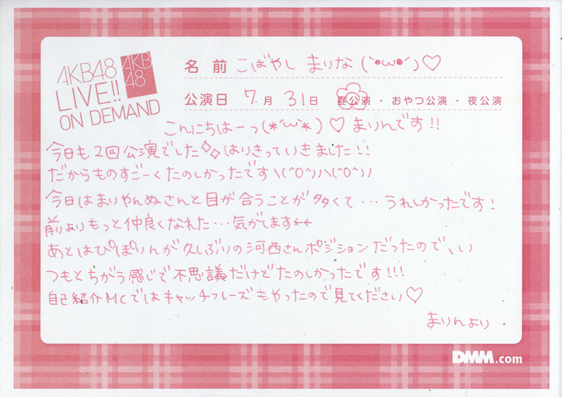 AKB48
LIVE!!
ON DEMAND
AKB
48
名前 こばやし まりな(`・ω・´)♡
公演日 7月 31日 昼公演・おやつ公演・夜公演
こんにちはーっ(*´ω`*)♡ まりんです!!
今日も2回公演でした✧✧はりきっていきました!!
だからものすごーくたのしかったです\(^o^)/\(^o^)/
今日はまりやんぬさんと目が合うことが多くて…うれしかったです!
前よりもっと仲良くなれた…気がします←←
あとはぴっぴぽりんが久しぶりの河西さんポジションだったので、い
つもとちがう感じで不思議だけどたのしかったです!!!
自己紹介MCではキャッチフレーズもやったので見てください♡
まりんより
DMM.com